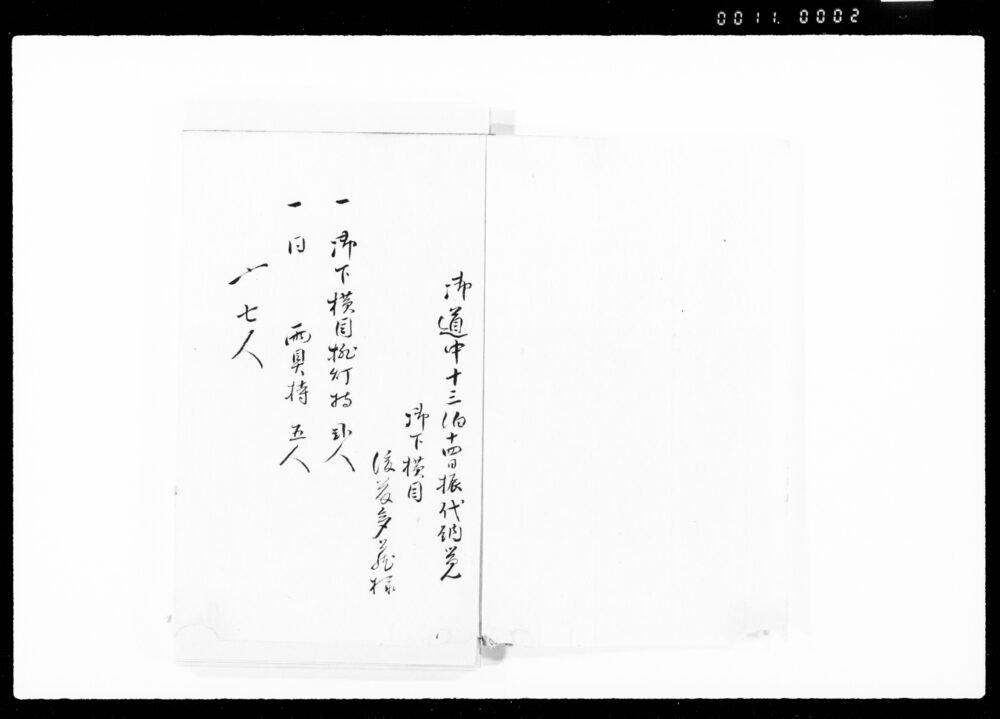 0011. 0002
御道中十三泊十四日振代銷覚
御下横目
後藤多蔵様
一 御下横目挑灯持 弐人
一 同 両具持 五人
〆七人